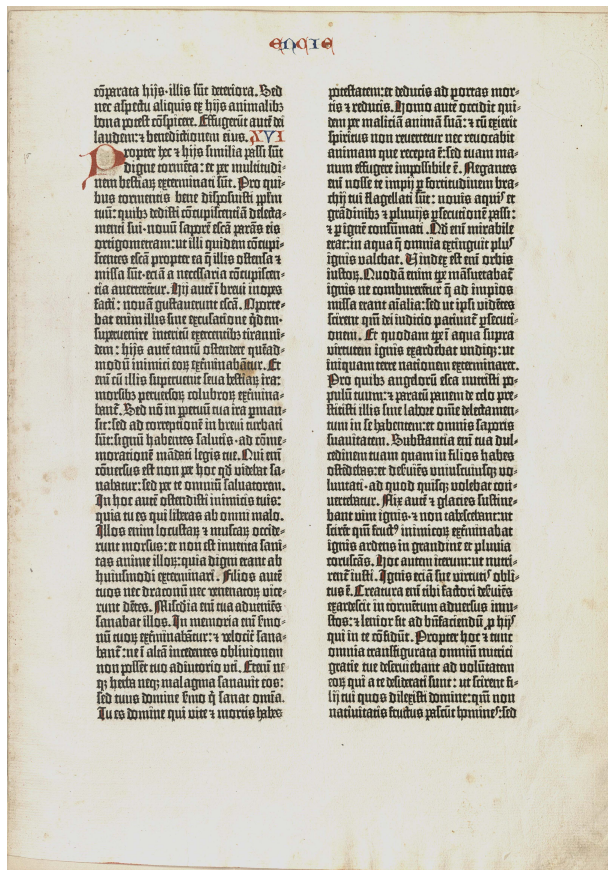 ENCIE
cōparata hijs·illis sūt deteriora. Sed
nec aspectu aliquis ex hijs animalibꝫ
bona potest cōspicere. Effugerūt autē dei
laudem: ⁊ benedictionem eius. XVI
Propter hec ⁊ hijs similia passi sūt
digne tormēta: et per multitudi-
nem bestiaꝝ exterminati sūt. Pro qui-
bus tormentis bene disposuisti ppłm
tuū: quibꝫ dedisti cōcupiscentiā delecta-
menti sui·nouū saporē escā parās eis
ortigometram: ut illi quidem cōcupi-
scentes escā propter ea q̄ illis ostensa ⁊
missa sūt·eciā a necessaria cōcupiscen-
tia auerterētur. Hij autē ī breui inopes
facti: nouā gustauerunt escā. Oporte-
bat enim illis sine excusatione q̄dem·
superuenire interitū exercentibꝫ tiranni-
dem: hijs autē tantū ostendere quēad-
modū inimici eoꝝ ext̄minabātur. Et
eni cū illis superuenit seua bestiaꝝ ira:
morsibꝫ peruersoꝝ colubroꝝ extmina-
bant̄. Sed nō in ppetuū tua ira pman-
sit: sed ad correptionē in breui turbati
sūt: signū habentes salutis·ad cōme-
morationē mādati legis tue. Qui eni
cōuersus est non per hoc qd videbat sa-
nabatur: sed per te omniū saluatorem.
In hoc autē ostendisti inimicis tuis:
quia tu es qui liberas ab omni malo.
Illos enim locustaꝝ ⁊ muscaꝝ occide-
runt morsus: et non est inuenta sani-
tas anime illoꝝ: quia digni erant ab
huiusmodi exterminari. Filios autē
tuos nec draconū nec venenatoꝝ vice-
runt dētes. Misedia eni tua adueniēs
sanabat illos. In memoria eni s̄mo-
nū tuoꝝ ext̄minabātur: ⁊ velocit̄ sana-
bant̄: ne ī altā incidentes obliuionem
non possēt tuo adiutorio vti. Eteni ne
qꝫ herba neqꝫ malagma sanauit eos:
sed tuus domine s̄mo q̄ sanat omīa.
Tu es domine qui vite ⁊ mortis habes
potestatem: et deducis ad portas mor-
tis ⁊ reducis. Homo autē occidit qui-
dem per maliciā animā suā: ⁊ cū exierit
spiritus non reuertetur nec reuocabit
animam que recepta ē: sed tuam ma-
num effugere impossibile ē. Negantes
eni te nosse impij p fortitudinem bra-
chij tui flagellati sūt: nouis aquis et
grādinibꝫ ⁊ pluuijs psecutionē passi:
⁊ p ignē consūmati. Qd eni mirabile
erat: in aqua q̄ omnia extinguit plus
ignis valebat. Vindex est eni orbis
iustoꝝ. Quodā enim tpe māsuetabat̄
ignis ne combureretur q̄ ad impios
missa erant aīalia: sed ut ipsi vidētes
scirent qm dei iudicio patiunt̄ psecuti-
onem. Et quodam tpe ī aqua supra
virtutem ignis exardebat vndiqꝫ: ut
iniquam terre nationem exterminaret.
Pro quibꝫ angeloꝝ esca nutristi po-
pulū tuum: ⁊ paratū panem de celo pre-
stitisti illis sine labore omē delectamen-
tum in se habentem: et omnis saporis
suauitatem. Substantia eni tua dul-
cedinem tuam quam in filios habes
ostēdebas: et deseruiēs vniuscuiusqꝫ vo-
luntati·ad quod quisqꝫ volebat con-
uertebatur. Nix autē ⁊ glacies sustine-
bant vim ignis·⁊ non tabescebant: ut
scirēt qm fructus inimicoꝝ ext̄minabat
ignis ardens in grandine et pluuia
coruscās. Hoc autem iterum: ut nutri-
rent̄ iusti. Ignis eciā sue virtutis obli-
tus ē. Creatura eni tibi factori deseruiēs
exardescit in tormētum aduersus iniu-
stos: ⁊ lenior fit ad bn̄faciendū p hijs
qui in te cōfidūt. Propter hoc ⁊ tunc
omnia transfigurata omniū nutrici
gratie tue deseruiebant ad volūtatem
eoꝝ qui a te desiderati sunt: ut scirent fi-
lij tui quos dilexisti domine: qm non
natiuitatis fructus pascūt homines: sed